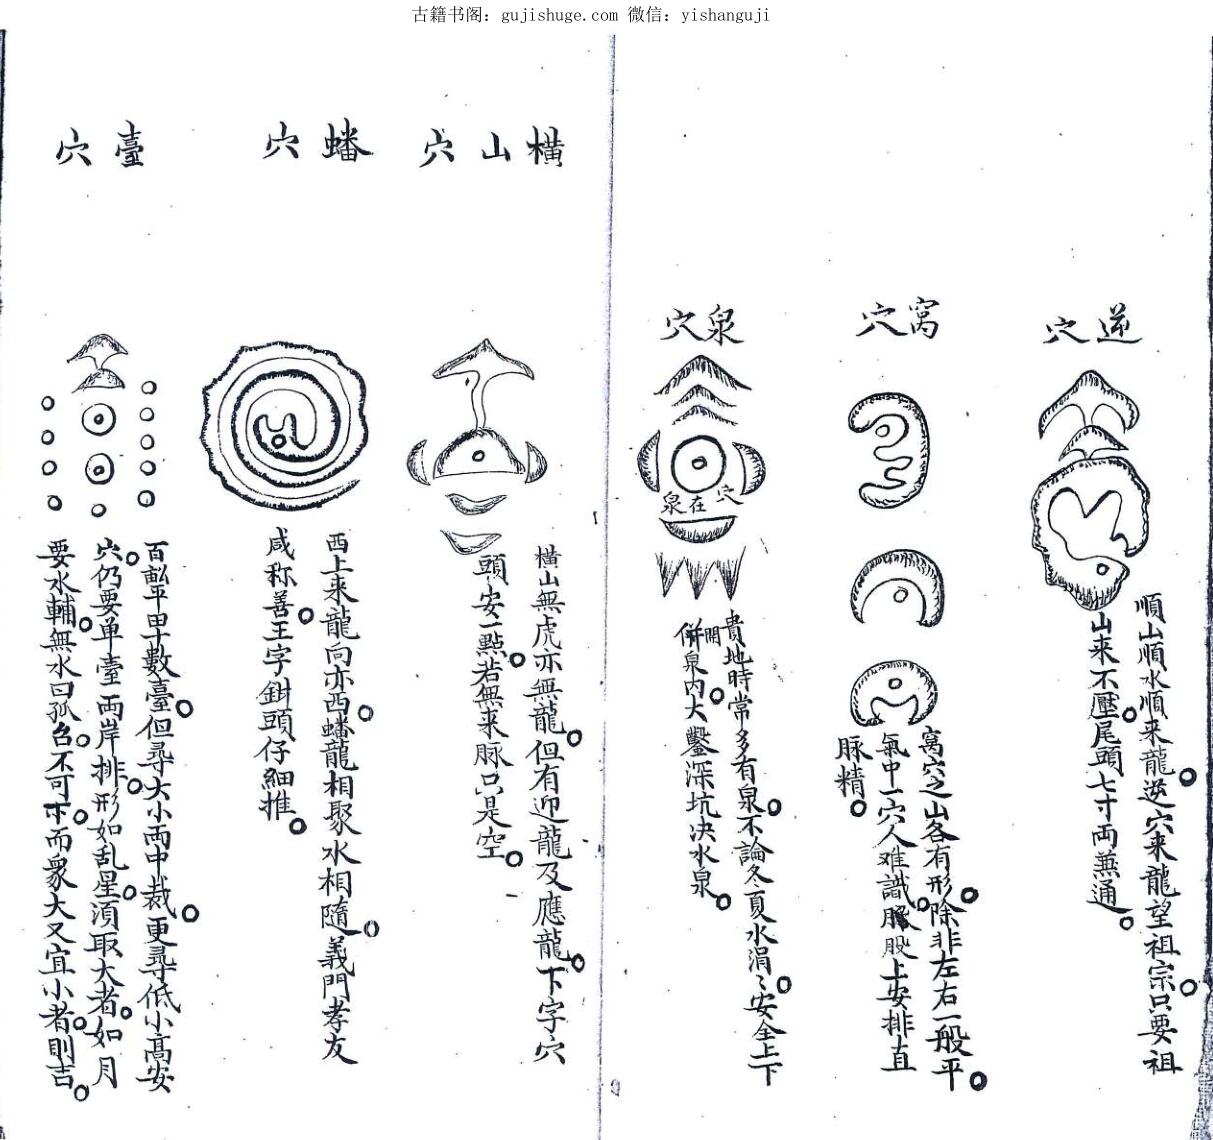 古籍书阁：gujishuge.com 微信：yishanguji
逆穴
順山順水順来龍逆穴来龍望祖宗只要祖
山来不壓尾頭七寸両無通
窩穴
窩穴之山各有形除非左右一般平
氣中一穴人难識股上安排直
脉精
泉穴
穴在泉
貴地時常多有泉不論冬夏水涓〻安全上下
併開泉内大鑿深坑决水泉
橫山穴
橫山無虎亦無龍但有迎龍及應龍下字穴
頭安一點若無来脉只是空
蟠穴
西上来龍向亦西蟠龍相聚水相隨義門孝友
咸称善王字鉗頭仔細推
臺穴
百畝平田十數臺但尋大小両中裁更尋低小高安
穴仍要单臺両岸排形如乱星湏取大者如月
要水輔無水曰孤不可下而衆大又宜小者則吉